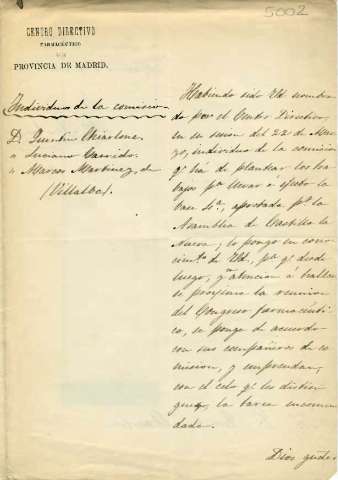 5002
CENTRO DIRECTIVO
FARMACÉUTICO
DE LA
PROVINCIA DE MADRID.
Individuos de la comision
D. Quintin Chiarlone
" Luciano Garrido
" Marcos Martinez, de
(Villalba).
Habiendo sido Vd nombra
do por el Centro Directivo,
en su sesion del 22 de Ma
yo, individuo de la comision
qe ha de plantear los tra
bajos pa llevar a efecto la
base 10a, aprobada pr la
Asamblea de Castilla la
Nueva, lo pongo en cono
cimto de Vd., pa qe desde
luego, y en atencion á hallar
se próxima la reunion
del Congreso farmacéuti
co, se ponga de acuerdo
con sus compañeros de co
mision, y emprendan,
con el celo qe les distin
gue, la tarea encomen
dada.
Dios gude